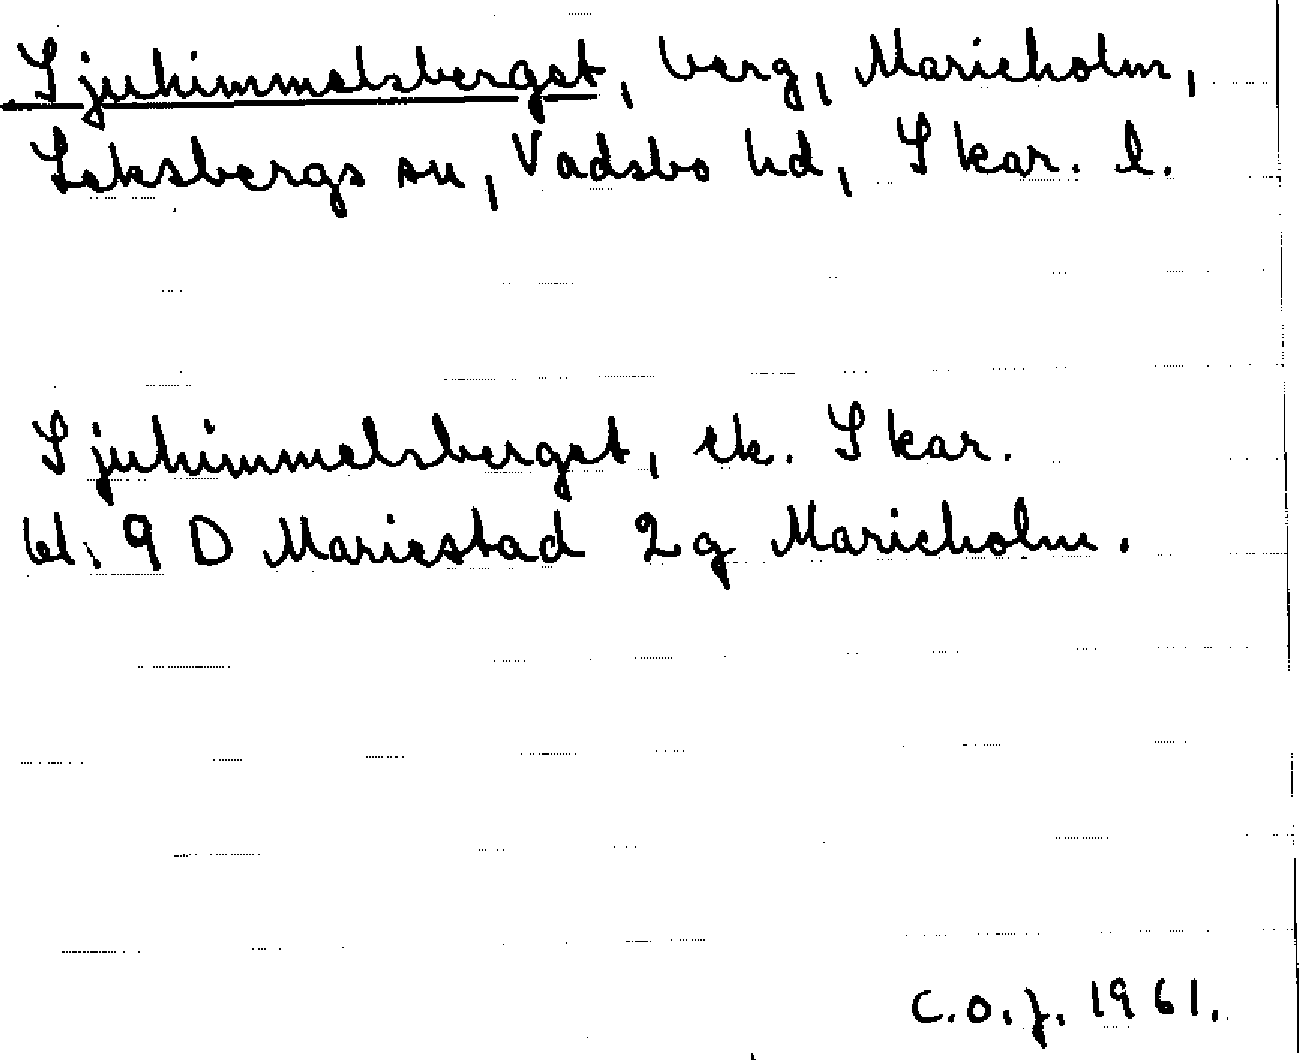 Sjuhimmelsberget, berg, Marieholm,
Leksbergs sn, Vadsbo hd, Skar. l.
Sjuhimmelsberget, ek. Skar.
bl. 9 D Mariestad 2g Marieholm.
C.O.J. 1961.